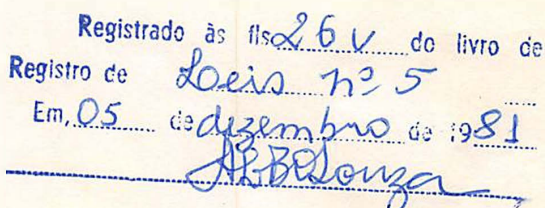 Registrado às fls 26 v do livro de
Registro de Leis nº 5
Em, 05 de dezembro de 1981